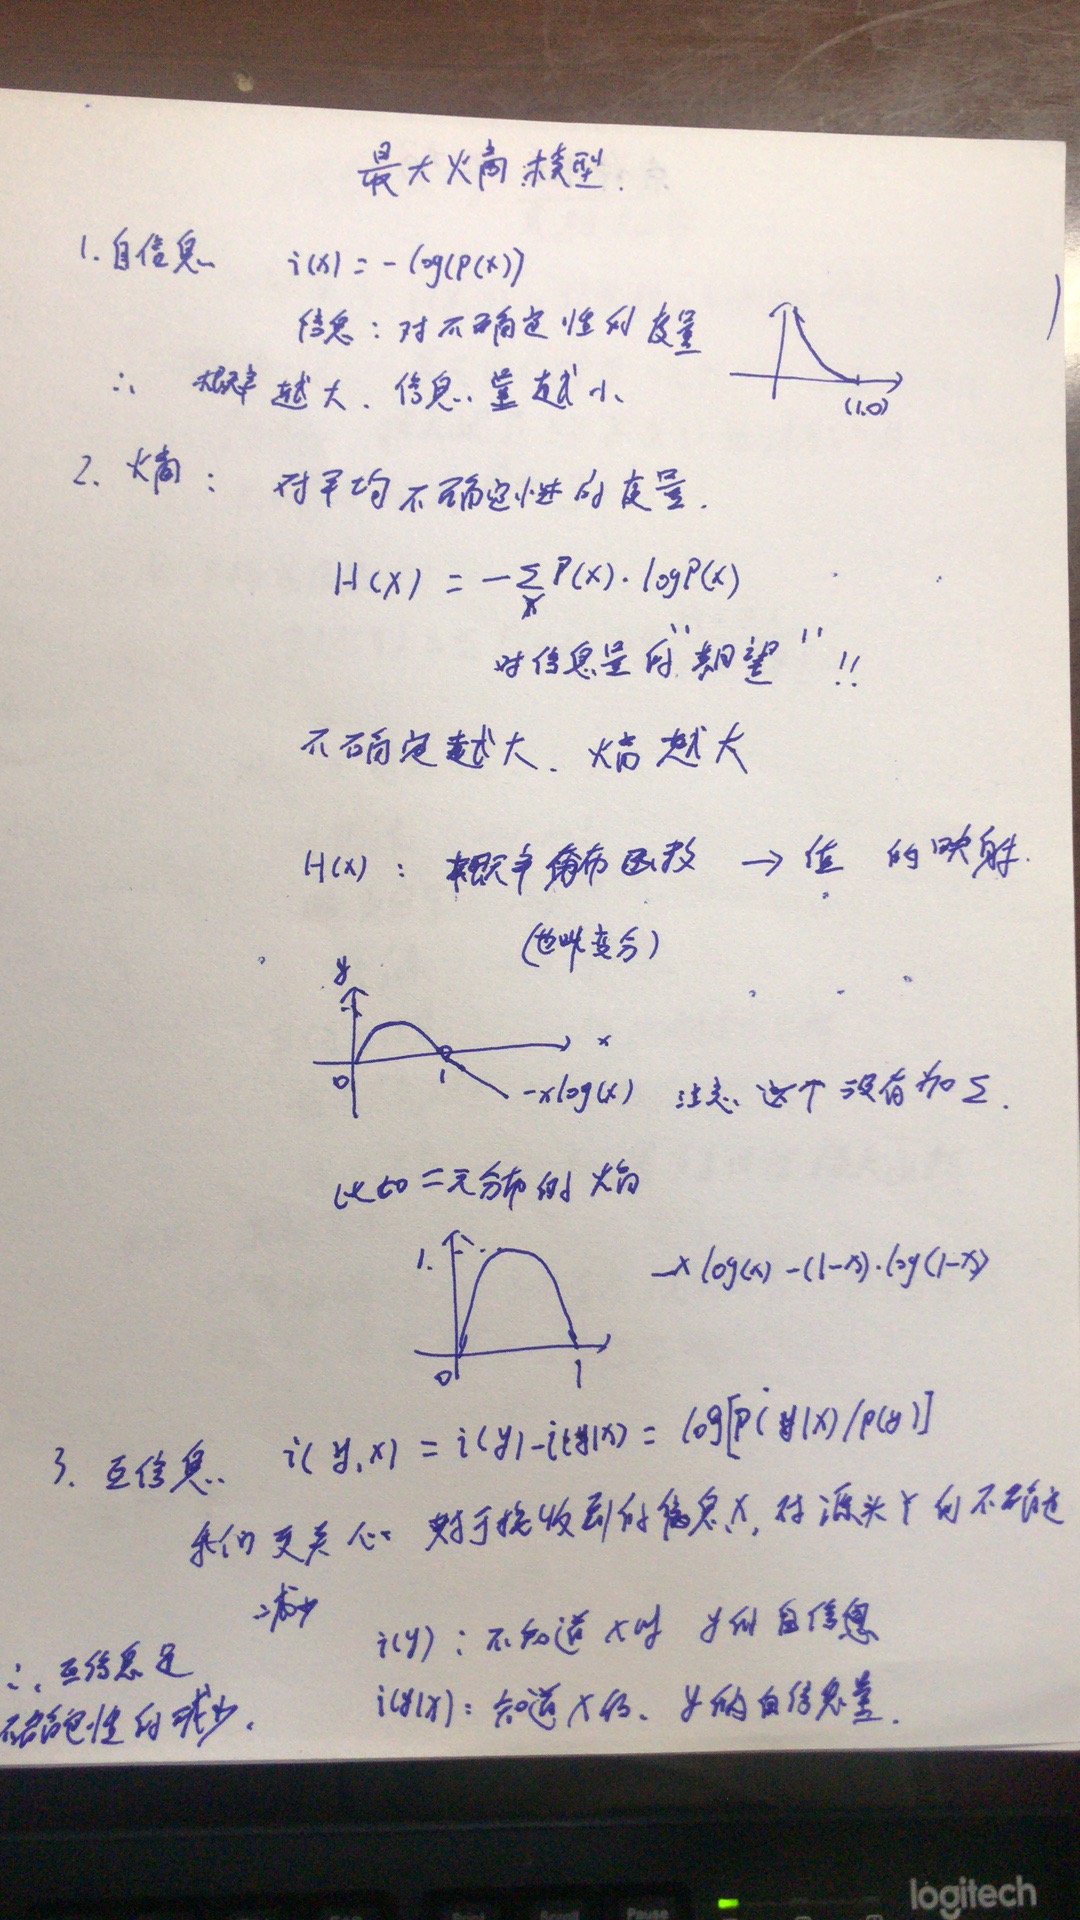 最大熵模型.
1. 自信息 i(x) = - log(P(x))
信息：对不确定性的度量
∴ 概率越大、信息量越小、
(1.0)
2、熵： 对平均不确定性的度量.
H(X) = -∑x P(x)·logP(x)
对信息量的"期望"!!
不确定越大、熵越大
H(x)： 概率分布函数 → 值 的映射.
(也叫变分)
y
x
0 1 -xlog(x) 注意、这个没有加Σ.
比如二元分布的熵
1. -x log(x) -(1-x)·log(1-x)
0 1
3. 互信息 i(y,x) = i(y)-i(y|x) = log[P(y|x)/P(y)]
我们更关心 对于接收到的信息X, 对源头Y的不确定
减少
i(y)：不知道x时 y的自信息
∴ 互信息是
i(y|x)：知道x的、y的自信息量.
不确定性的减少.
logitech
Pause